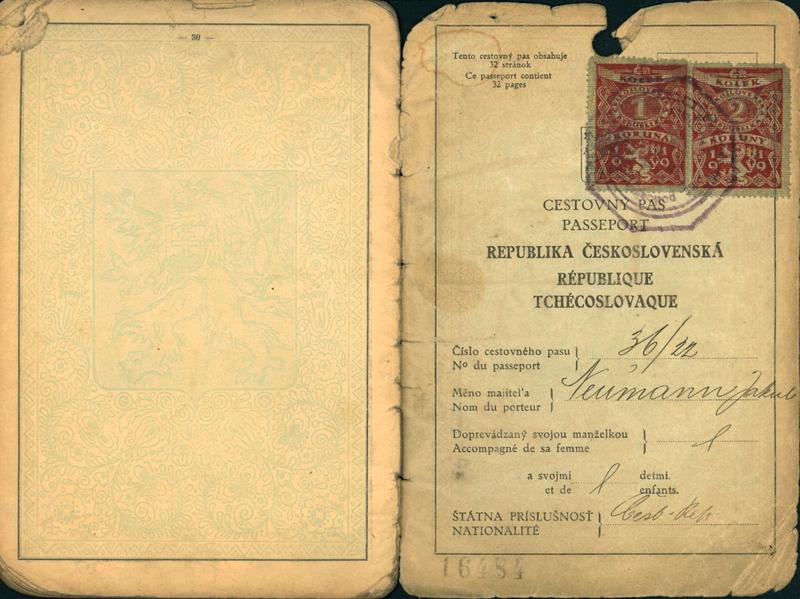 — 30 —
Tento cestovný pas obsahuje
32 stránok
Ce passeport contient
32 pages
ČR
KOLEK
1
KORUNA
1919
ČR
KOLEK
2
KORUNY
1919
CESTOVNÝ PAS
PASSEPORT
REPUBLIKA ČESKOSLOVENSKÁ
RÉPUBLIQUE
TCHÉCOSLOVAQUE
Číslo cestovného pasu } 36/22
Nº du passeport
Méno majiteľa } Neumann Jakub
Nom du porteur
Doprevádzaný svojou manželkou }
Accompagné de sa femme
a svojmi detmi.
et de enfants.
ŠTÁTNA PRÍSLUŠNOSŤ }
NATIONALITÉ
16484